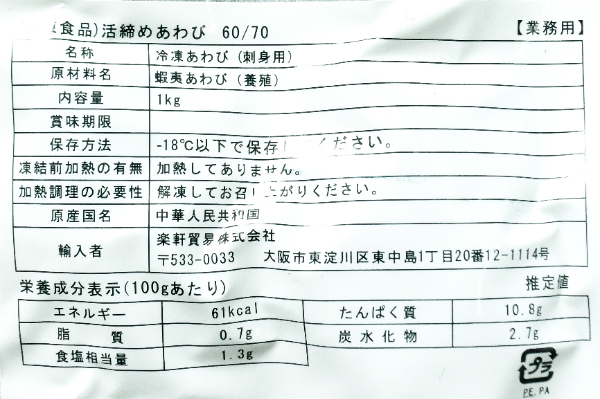 食品)活締めあわび 60/70 【業務用】
名称 冷凍あわび (刺身用)
原材料名 蝦夷あわび (養殖)
内容量 1kg
賞味期限
保存方法 -18℃以下で保存 ください。
凍結前加熱の有無 加熱してありません。
加熱調理の必要性 解凍してお召し上がりください。
原産国名 中華人民共和国
輸入者 楽軒貿易株式会社
〒533-0033 大阪市東淀川区東中島1丁目20番12-1114号
栄養成分表示(100gあたり) 推定値
エネルギー 61kcal たんぱく質 10.8g
脂質 0.7g 炭水化物 2.7g
食塩相当量 1.3g
プラ
PE,PA